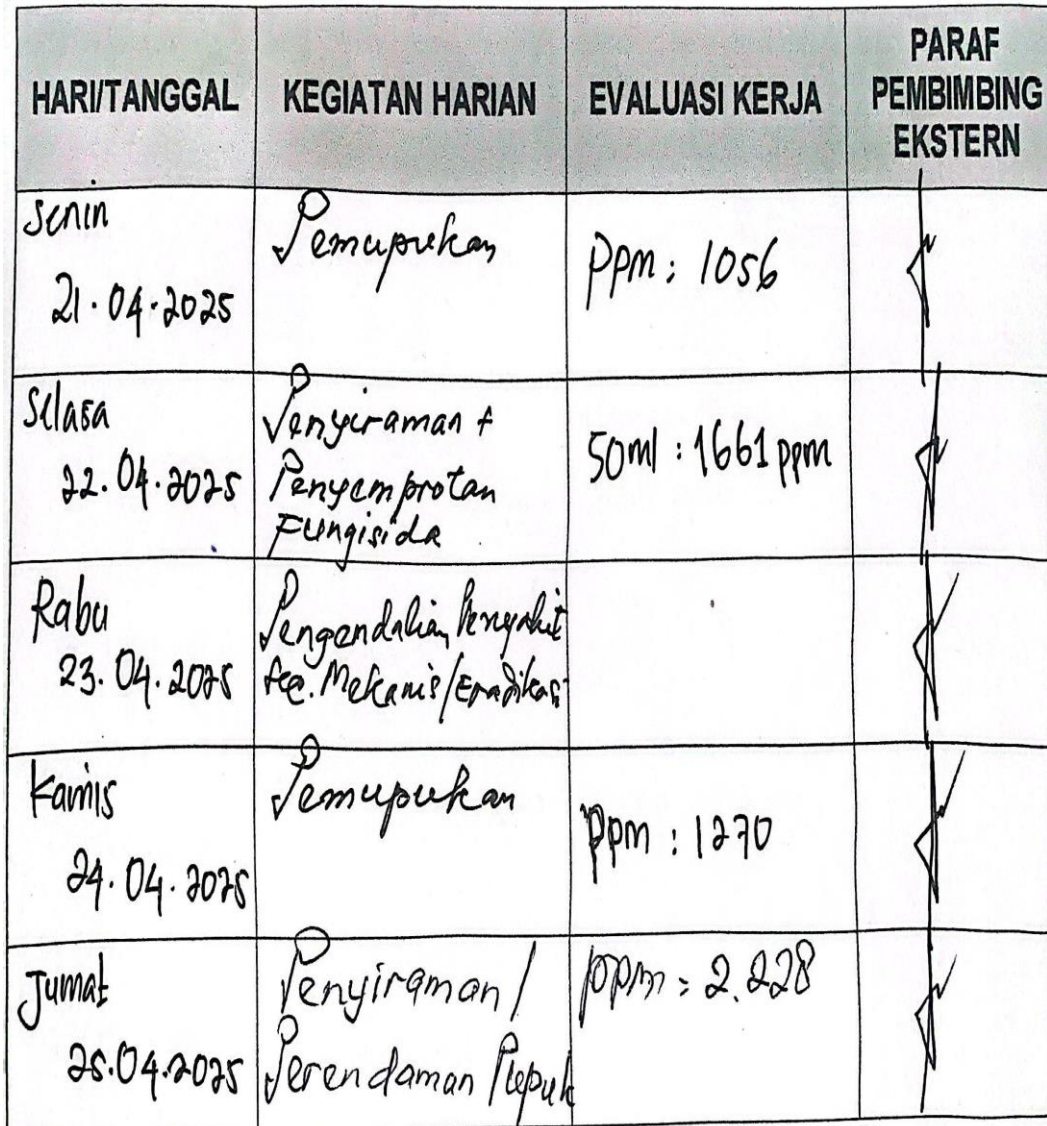 HARI/TANGGAL
KEGIATAN HARIAN
EVALUASI KERJA
PARAF
PEMBIMBING
EKSTERN
Senin
21.04.2025
Pemupukan
ppm : 1056
Selasa
22.04.2025
Penyiraman +
Penyemprotan
Fungisida
50ml : 1661 ppm
Rabu
23.04.2025
Pengendalian Penyakit
sec. Mekanis/Eradikasi
Kamis
24.04.2025
Pemupukan
ppm : 1270
Jumat
25.04.2025
Penyiraman /
Perendaman Pupuk
ppm : 2.228